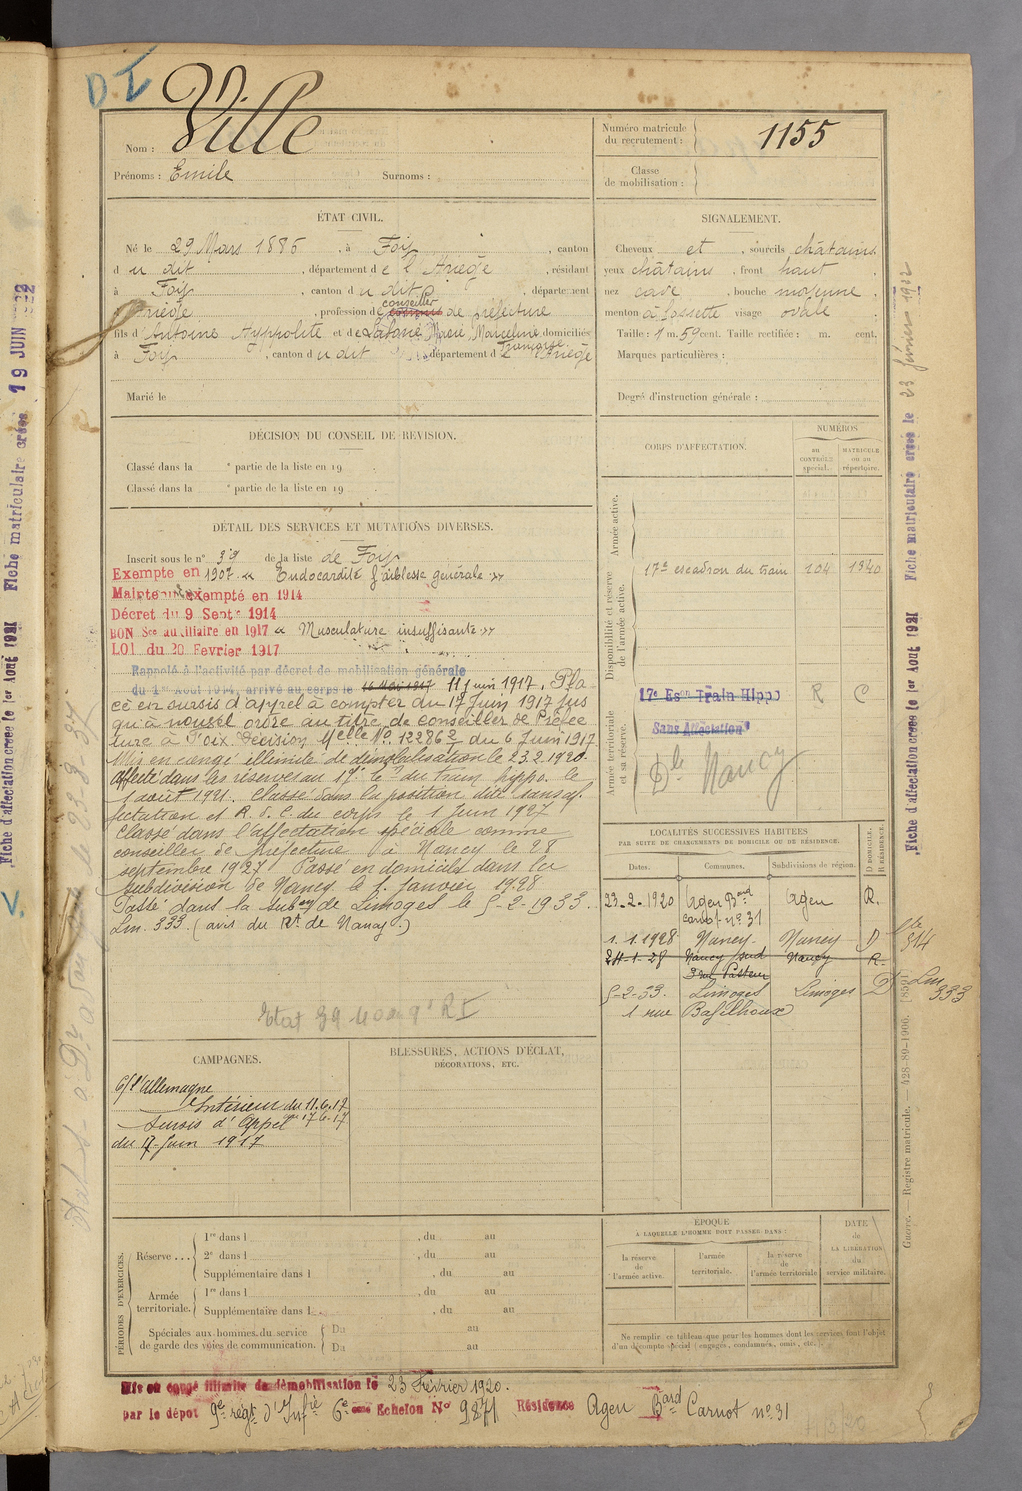 D I
Nom : Ville
Prénoms : Emile Surnoms :
Numéro matricule du recrutement : 1155
Classe de mobilisation :
ÉTAT CIVIL.
Né le 29 Mars 1886, à Foix, canton
du dit, département de l'Ariège, résidant
à Foix, canton du dit, département
d'Ariège, profession de conseiller de préfecture
fils d'Antoine Hyppolite et de Marie, Marceline, Françoise domiciliés
à Foix, canton du dit département de l'Ariège
Marié le
SIGNALEMENT.
Cheveux et sourcils châtains
yeux châtains, front haut
nez cave, bouche moyenne
menton à fossette visage ovale
Taille : 1 m. 59 cent. Taille rectifiée : m. cent.
Marques particulières :
Degré d'instruction générale :
DÉCISION DU CONSEIL DE RÉVISION.
Classé dans la e partie de la liste en 19
Classé dans la e partie de la liste en 19
DÉTAIL DES SERVICES ET MUTATIONS DIVERSES.
Inscrit sous le n° 39 de la liste de Foix
Exempté en 1907 « Endocardite faiblesse générale »
Maintenu exempté en 1914
Décret du 9 Sept 1914
BON Sce auxiliaire en 1917 « Musculature insuffisante »
LOI du 20 Fevrier 1917
Rappelé à l'activité par décret de mobilisation générale
du 1er Août 1914, arrivé au corps le 11 juin 1917. Pla-
cé en sursis d'appel à compter du 17 Juin 1917 jus
qu'à nouvel ordre au titre de conseiller de Préfec
ture à Foix. Décision Melle No 122862 du 6 Juin 1917
Mis en congé illimité de démobilisation le 23.2.1920.
Affecté dans les réserves au 17e du train hippo. le
1 août 1921. Classé dans la position dite sans af-
fectation et R. P. C. du corps le 1 Juin 1927
Classé dans l'affectation spéciale comme
conseiller de préfecture à Nancy le 28
septembre 1927. Passé en domicile dans la
subdivision de Nancy le 1. Janvier 1928
Passé dans la subon de Limoges le 5-2-1933.
Lm. 333 (avis du Rt de Nancy.)
Etat 39 40 9e R I
CORPS D'AFFECTATION.
NUMÉROS
au CONTRÔLE spécial.
MATRICULE ou au répertoire.
Armée active.
Disponibilité et réserve de l'armée active.
17e escadron du train 104 1340
Armée territoriale et sa réserve.
17e Eson Train Hippo R C
Sans Affectation
Dle Nancy
LOCALITÉS SUCCESSIVES HABITÉES
PAR SUITE DE CHANGEMENTS DE DOMICILE OU DE RÉSIDENCE.
Dates. Communes. Subdivisions de région. D DOMICILE. R RÉSIDENCE.
23-2-1920 Agen Bard Carnot n° 31 Agen R.
1.1.1928 Nancy Nancy D
24-1-28 Nancy sud Nancy R.
3 rue Pasteur
5-2-33. Limoges Limoges D Lm 333
1 rue
CAMPAGNES.
C/ l'Allemagne
Intérieur du 11.6.17
au 17-6-17
Sursis d'Appel
du 17 Juin 1917
BLESSURES, ACTIONS D'ÉCLAT,
DÉCORATIONS, ETC.
PÉRIODES D'EXERCICES.
Réserve ... 1re dans l , du au
2e dans l , du au
Supplémentaire dans l , du au
Armée territoriale. 1re dans l , du au
Supplémentaire dans l , du au
Spéciales aux hommes du service de garde des voies de communication. Du au
Du au
ÉPOQUE
À LAQUELLE L'HOMME DOIT PASSER DANS :
la réserve de l'armée active.
l'armée territoriale.
la réserve de l'armée territoriale
DATE de LA LIBÉRATION du service militaire.
Ne remplir ce tableau que pour les hommes dont les services font l'objet
d'un décompte spécial (engagés, condamnés, omis, etc.).
Mis en congé illimité de démobilisation le 23 Février 1920.
par le dépôt 9e régt d'Infie 6e Echelon No 9871 Résidence Agen Bard Carnot n° 31
Fiche d'affectation créée le 1er Août 1921 Fiche matriculaire créée le 23 février 1922
Guerre. — Registre matricule. — 428-89-1906. [859]
Fiche d'affectation créée le 1er Août 1921 Fiche matriculaire créée 19 JUIN 1922
V.